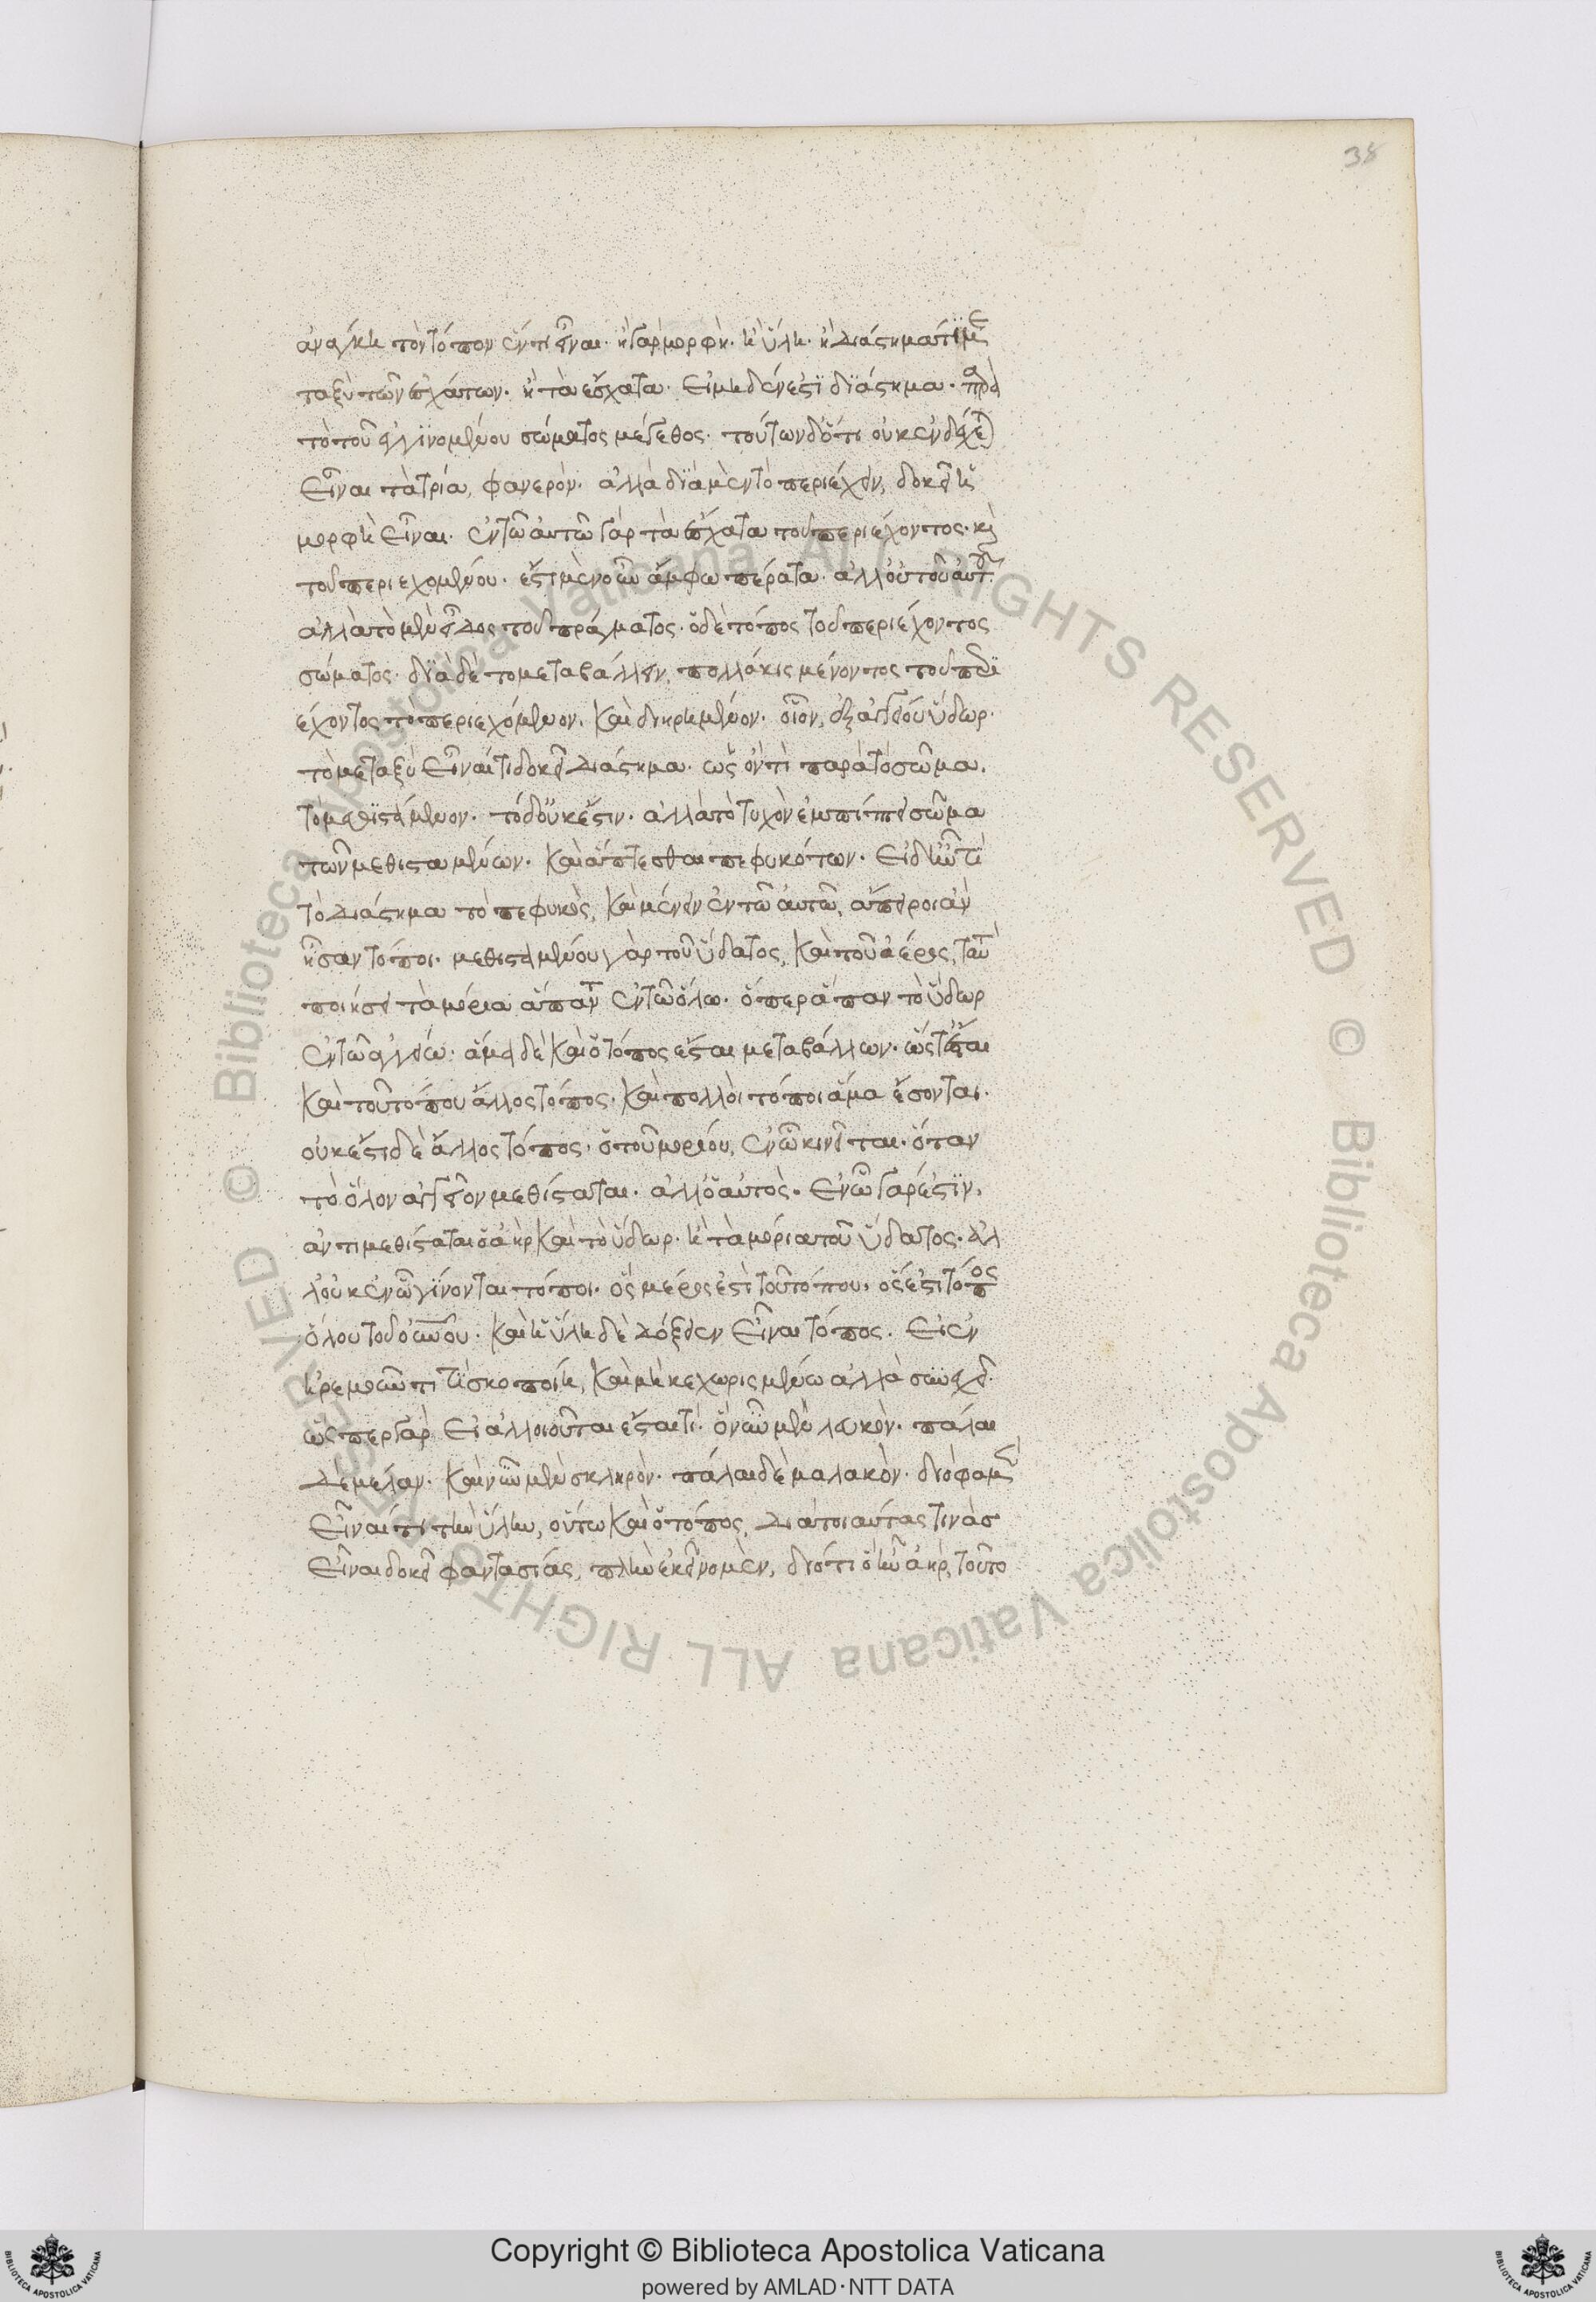 38
ἀνάγκη τὸν τόπον ἕν τι εἶναι· ἢ γὰρ μορφή· ἢ ὕλη· ἢ διάστημά τι με
ταξὺ τῶν ἐσχάτων· ἢ τὰ ἔσχατα· εἰ μηδέν ἐστι διάστημα· παρὰ
τὸ τοῦ ἐγγινομένου σώματος μέγεθος· τούτων δ' ὅτι οὐκ ἐνδέχεται
εἶναι τὰ τρία, φανερόν· ἀλλὰ διὰ μὲν τὸ περιέχειν, δοκεῖ ἡ
μορφὴ εἶναι· ἐν τῶ αὐτῶ γὰρ τὰ ἔσχατα τοῦ περιέχοντος· καὶ
τοῦ περιεχομένου· ἔστι μὲν οὖν ἄμφω πέρατα· ἀλλ' οὐ τοῦ αὐτοῦ·
ἀλλὰ τὸ μὲν εἶδος τοῦ πράγματος· ὁ δὲ τόπος τοῦ περιέχοντος
σώματος· διὰ δὲ τὸ μεταβάλλειν, πολλάκις μένοντος τοῦ περι
έχοντος τὸ περιεχόμενον, καὶ διῃρημένον· οἷον, ἐξ ἀγγείου ὕδωρ·
τὸ μεταξὺ εἶναί τι δοκεῖ διάστημα· ὡς ὄν τι παρὰ τὸ σῶμα,
τὸ μεθιστάμενον· τὸ δ' οὐκ ἔστιν· ἀλλὰ τὸ τυχὸν ἐμπίπτει σῶμα
τῶν μεθισταμένων· καὶ ἅπτεσθαι πεφυκότων· εἰ δ' ἦν τι
τὸ διάστημα τὸ πεφυκὸς, καὶ μένειν ἐν τῶ αὐτῶ, ἄπειροι ἂν
ἦσαν τόποι· μεθισταμένου γὰρ τοῦ ὕδατος, καὶ τοῦ ἀέρος, ταὐτὸ
ποιήσει τὰ μόρια ἅπαντα ἐν τῶ ὅλω· ὅπερ ἅπαν τὸ ὕδωρ
ἐν τῶ ἀγγείω· ἅμα δὲ καὶ ὁ τόπος ἔσται μεταβάλλων· ὥστ' ἔσται
καὶ τοῦ τόπου ἄλλος τόπος· καὶ πολλοὶ τόποι ἅμα ἔσονται·
οὐκ ἔστι δὲ ἄλλος τόπος· ὁ τοῦ μορίου, ἐν ὧ κινεῖται· ὅταν
τὸ ὅλον ἀγγεῖον μεθίσταται· ἀλλ' ὁ αὐτός· ἐν ὧ γάρ ἐστιν,
ἀντιμεθίσταται ὁ ἀὴρ καὶ τὸ ὕδωρ· ἢ τὰ μόρια τοῦ ὕδατος· ἀλ
λ' οὐκ ἐν ὧ γίνονται τόποι· ὃς μέρος ἐστὶ τοῦ τόπου, ὅς ἐστι τόπος
ὅλου τοῦ οὐρανοῦ· καὶ ἡ ὕλη δὲ δόξειεν εἶναι τόπος· εἰ ἐν
ἠρεμοῦντί τις σκοποίη, καὶ μὴ κεχωρισμένω ἀλλὰ συνεχεῖ·
ὥσπερ γὰρ εἰ ἀλλοιοῦται ἔστι τι· ὃ νῦν μὲν λευκόν· πάλαι
δὲ μέλαν· καὶ νῦν μὲν σκληρὸν· πάλαι δὲ μαλακὸν· διό φαμεν
εἶναί τι τὴν ὕλην, οὕτω καὶ ὁ τόπος, διὰ τοιαύτας τινὰς
εἶναι δοκεῖ φαντασίας, πλὴν ἐκεῖνο μὲν, διότι ὃ ἦν ἀὴρ, τοῦτο
Copyright © Biblioteca Apostolica Vaticana
powered by AMLAD·NTT DATA